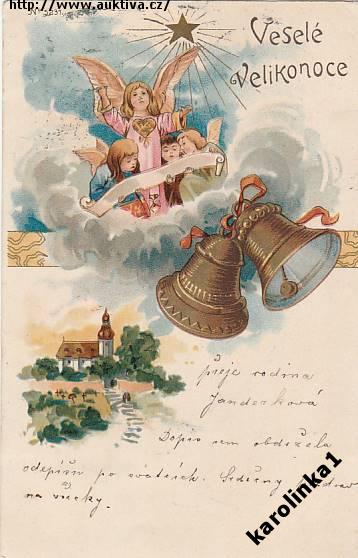 http://www.auktiva.cz/
Veselé
Velikonoce
přeje rodina
Janderková
Dopis sem obdržela
odepíšu po svátcích. Srdečný
na všecky.
karolinka1